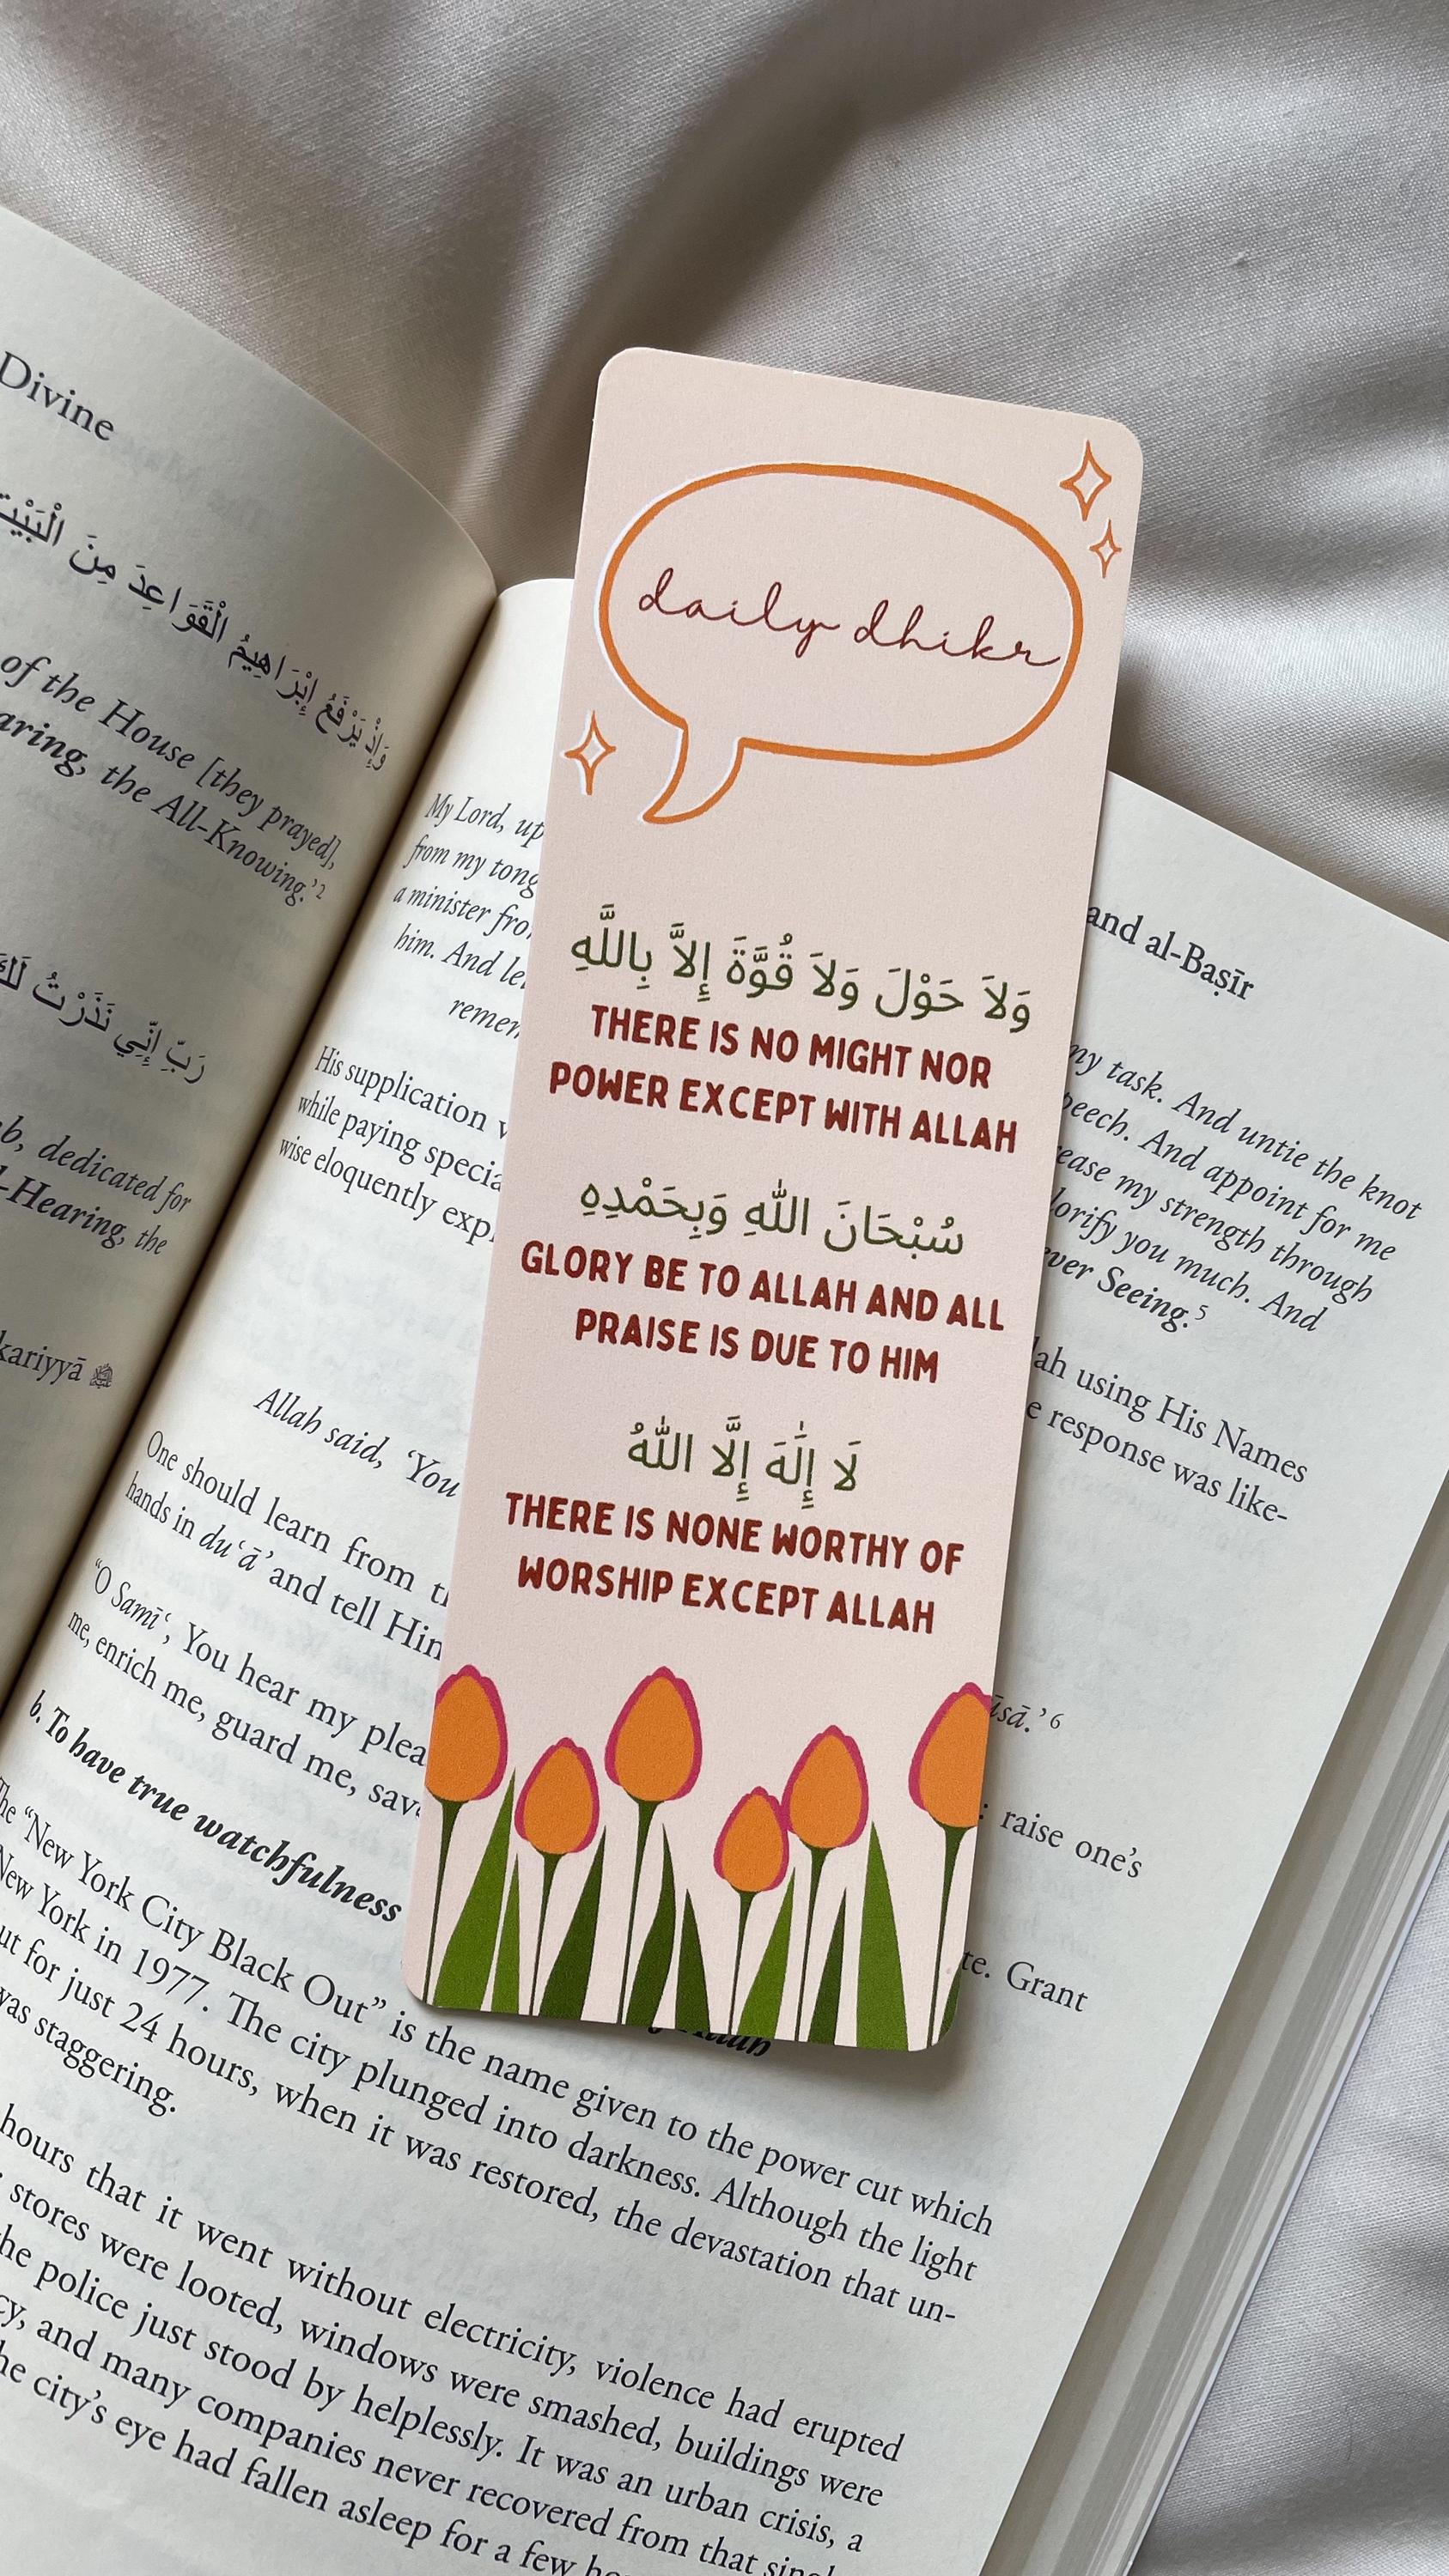 Divine
وَإِذْ يَرْفَعُ إِبْرَاهِيمُ الْقَوَاعِدَ مِنَ الْبَيْتِ
of the House [they prayed],
aring, the All-Knowing.’2
رَبِّ إِنِّي نَذَرْتُ لَكَ
b, dedicated for
-Hearing, the
kariyyā
daily dhikr
وَلاَ حَوْلَ وَلاَ قُوَّةَ إِلاَّ بِاللَّهِ
THERE IS NO MIGHT NOR
POWER EXCEPT WITH ALLAH
سُبْحَانَ اللّٰهِ وَبِحَمْدِهِ
GLORY BE TO ALLAH AND ALL
PRAISE IS DUE TO HIM
لَا إِلٰهَ إِلَّا اللّٰهُ
THERE IS NONE WORTHY OF
WORSHIP EXCEPT ALLAH
and al-Baṣīr
My Lord, up my task. And untie the knot
from my tong peech. And appoint for me
a minister fro rease my strength through
him. And le lorify you much. And
remem ever Seeing.5
His supplication lah using His Names
while paying specia e response was like-
wise eloquently exp
Allah said, ‘You ūsā.’6
One should learn from : raise one’s
hands in du‘ā’ and tell Him
“O Samī‘, You hear my plea te. Grant
me, enrich me, guard me, sav
b. To have true watchfulness
The “New York City Black Out” is the name given to the power cut which
New York in 1977. The city plunged into darkness. Although the light
ut for just 24 hours, when it was restored, the devastation that un-
was staggering.
hours that it went without electricity, violence had erupted
stores were looted, windows were smashed, buildings were
he police just stood by helplessly. It was an urban crisis, a
cy, and many companies never recovered from that
he city’s eye had fallen asleep for a few